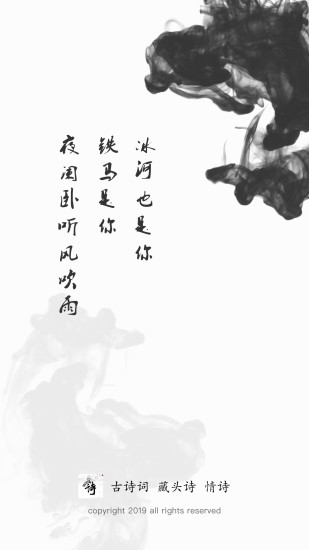 夜阑卧听风吹雨
铁马是你
冰河也是你
诗
古诗词 藏头诗 情诗
copyright 2019 all rights reserved